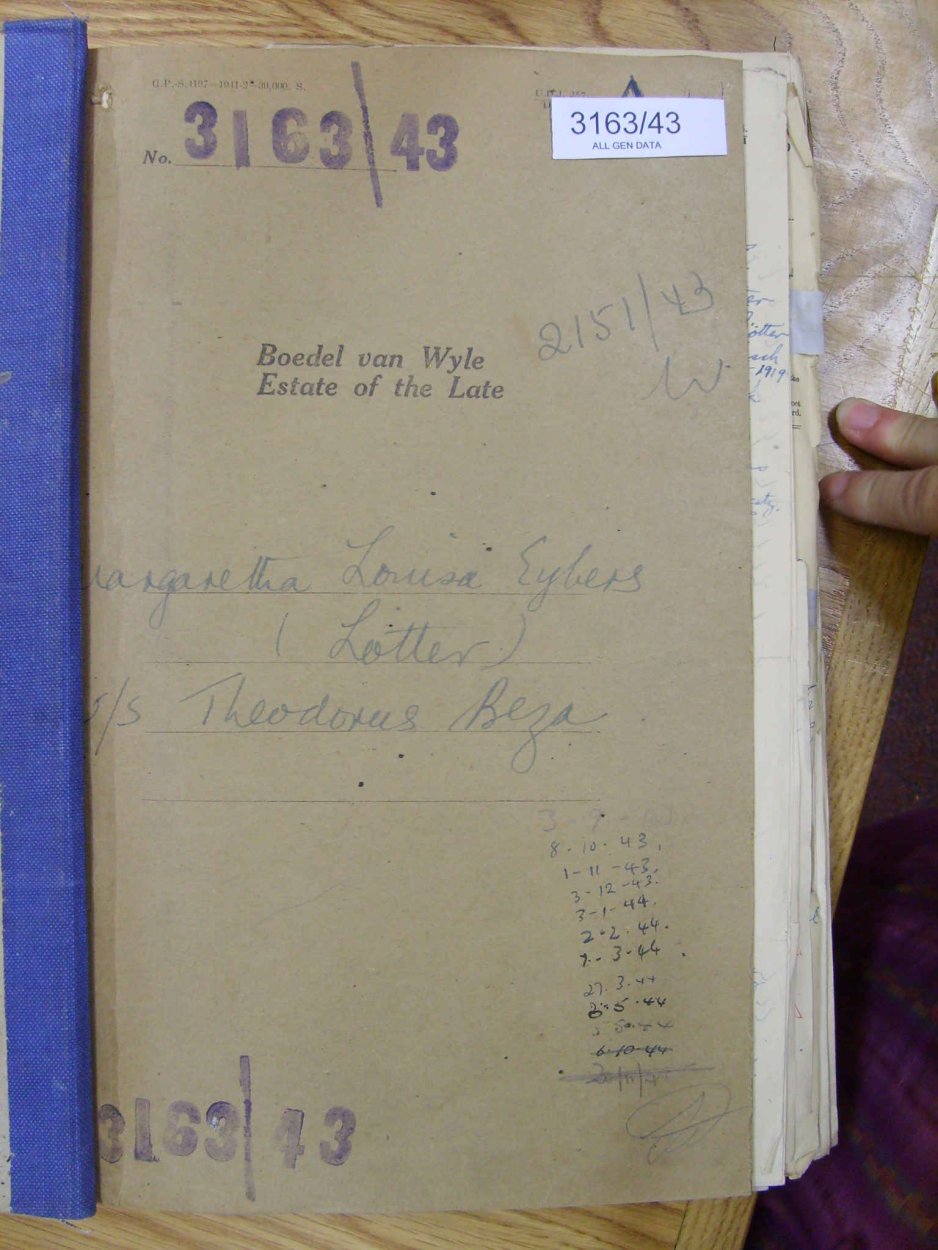 G.P.-S.4197-1941-2-30,000. S.
No. 3163/43
3163/43
ALL GEN DATA
2151/43
W
Boedel van Wyle
Estate of the Late
argaretha Louisa Eybers
(Lötter)
s/s Theodorus Beza
8-10-43,
1-11-43,
3-12-43.
3-1-44.
2-2-44.
7-3-44
27.3.44
8-5-44
6-10-44
3163/43
ötter
sch
1919